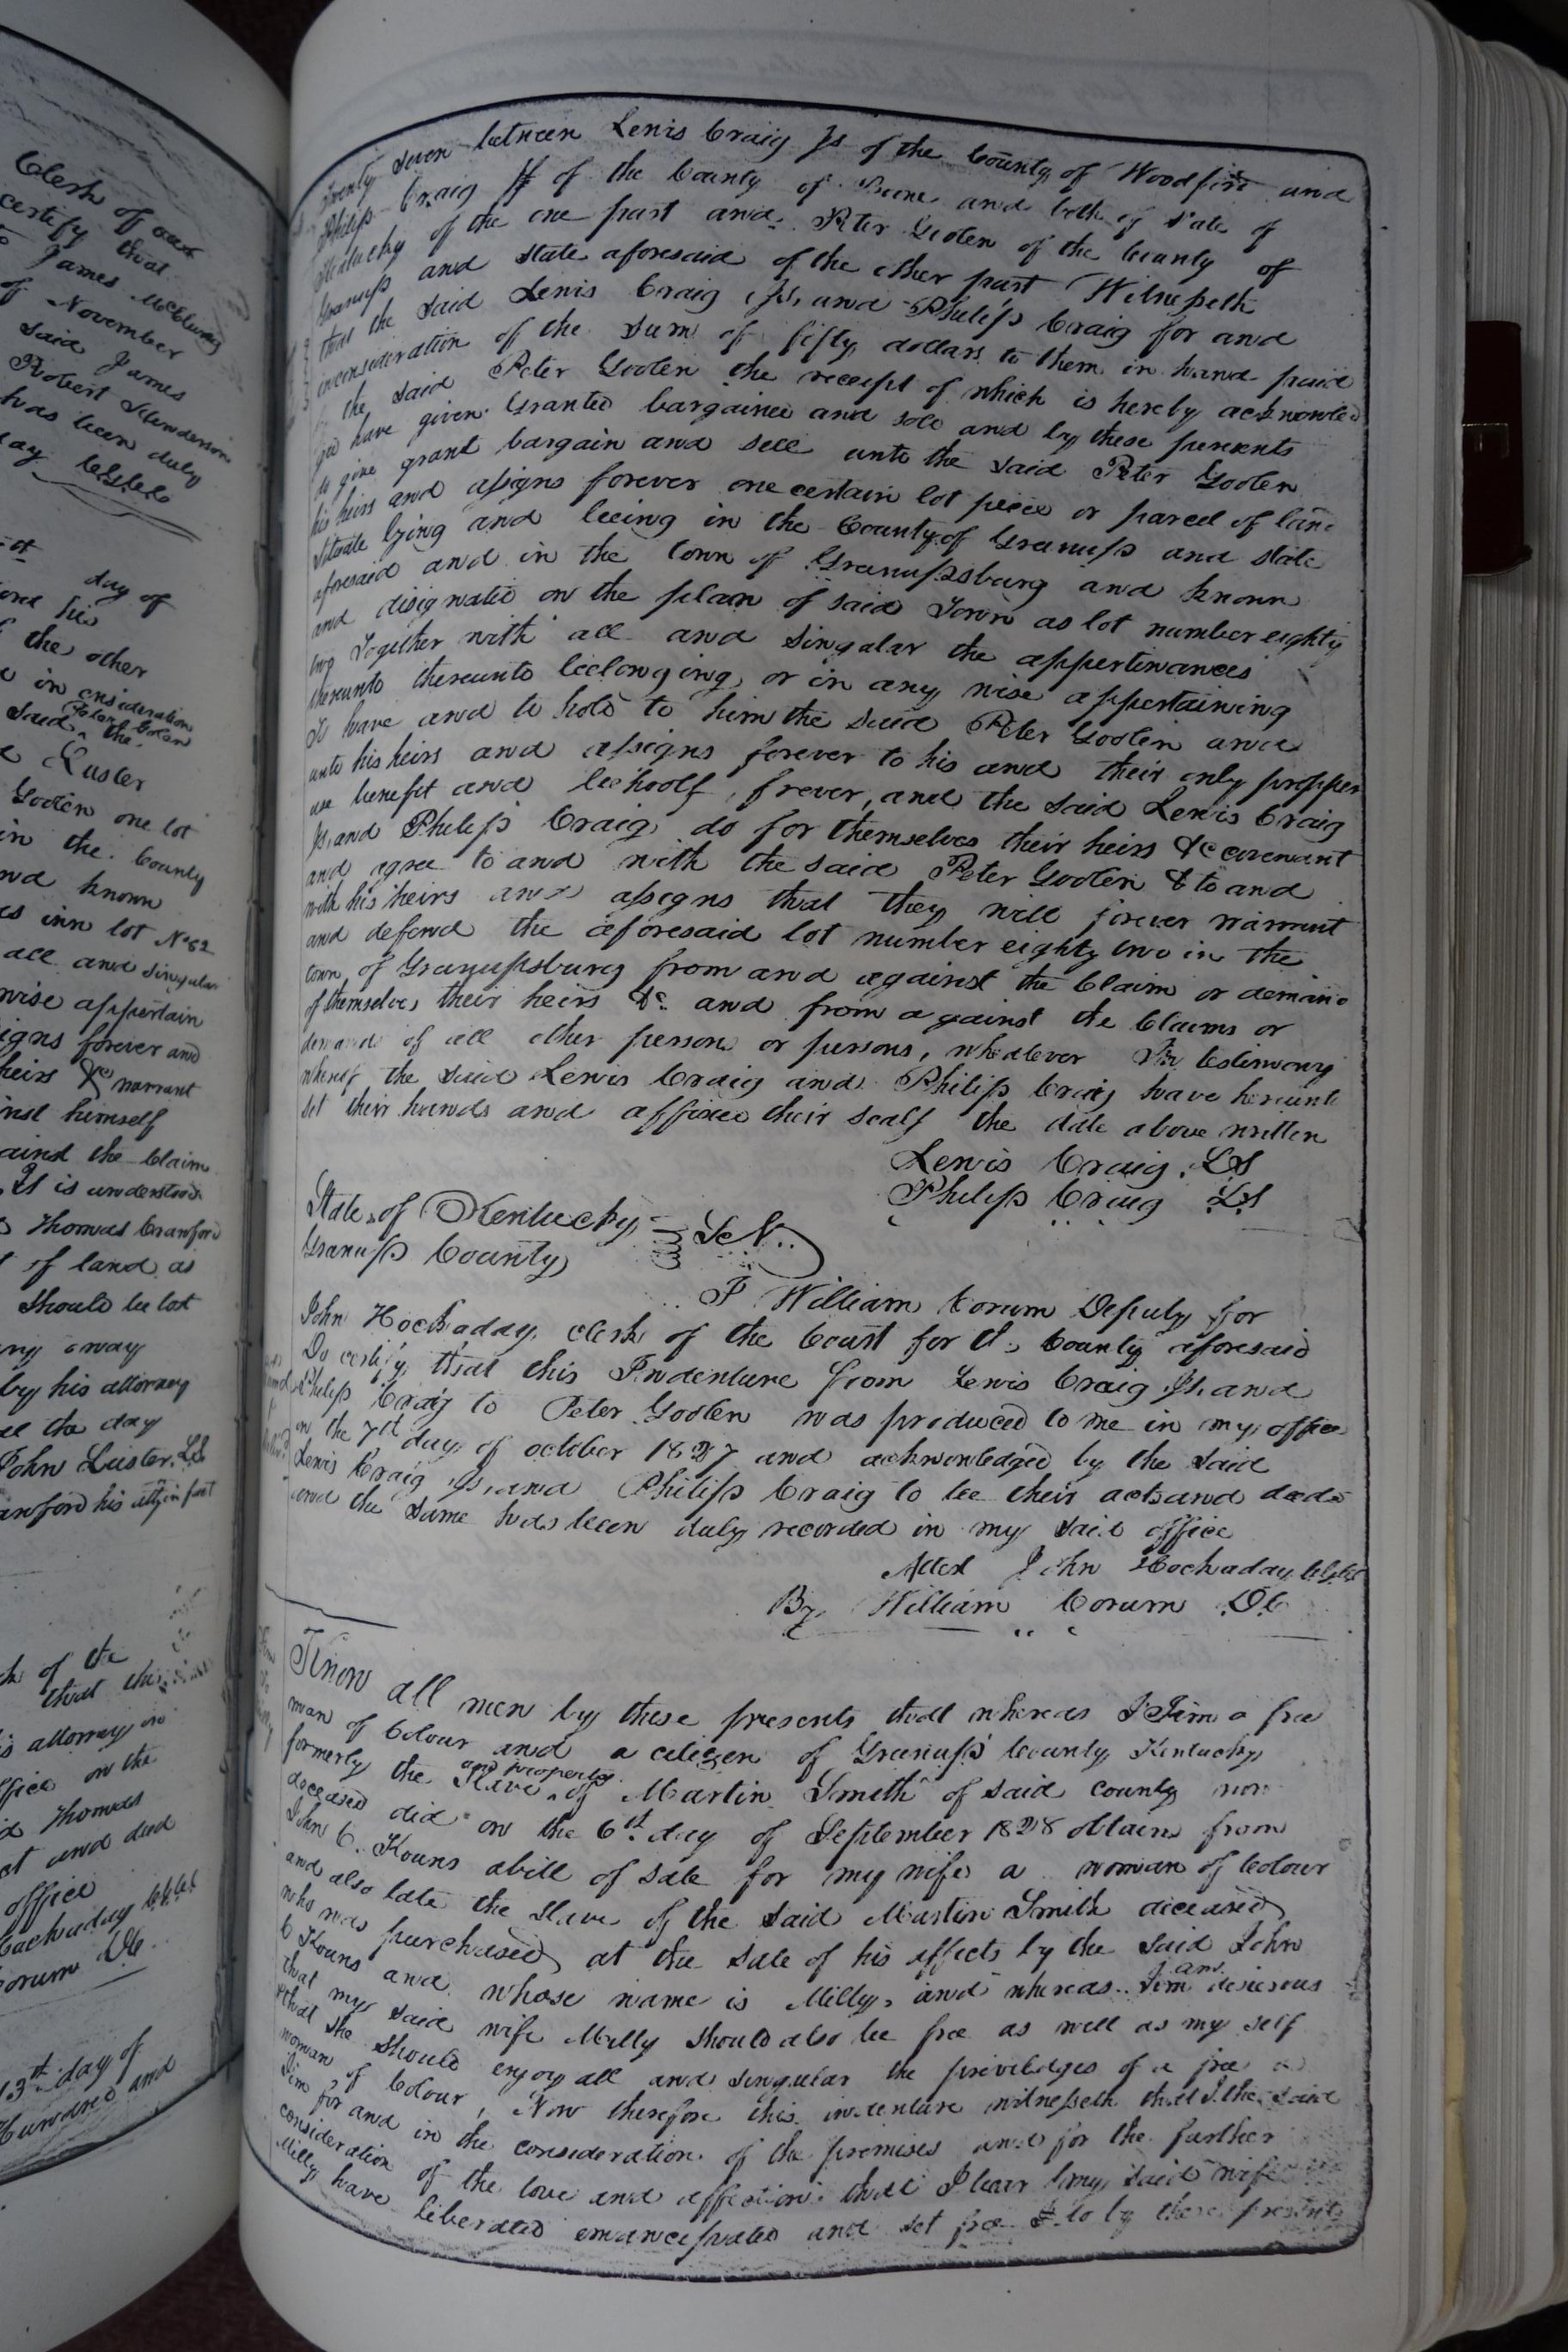 Clerk of our
certify that
James McClung
of November
said James
Robert Henderson
has been duly
day
day of
and his
the other
in consideration
Peter Goolen
said the
Luster
Goolen one lot
in the County
and known
as inn lot No 82
all and singular
wise appertain
signs forever and
heirs &c warrant
inst himself
ainst the Claim
It is understood
Thomas Cranford
of land as
should be lost
away
by his attorney
the day
John Luster LS
anford his atty in fact
of the
that the
attorney in
office on the
Thomas
act and deed
office
Hockaday
Corum DC
13th day of
Hundred and
Twenty Seven between Lewis Craig Jr of the County of Woodford and
Philip Craig of the County of Boone and both of State of
Kentucky of the one part and Peter Goolen of the County of
Greenup and State aforesaid of the other part Witnesseth
that the said Lewis Craig Jr, and Philip Craig for and
inconsideration of the Sum of fifty dollars to them in hand paid
by the said Peter Goolen the receipt of which is hereby acknowled
ged have given Granted bargained and sold and by these presents
do give grant bargain and sell unto the said Peter Goolen
his heirs and assigns forever one certain lot piece or parcel of land
Situate lying and being in the County of Greenup and State
aforesaid and in the town of Greenupsburg and known
and disignated on the plan of said Town as lot number eighty
two Together with all and Singular the appertinances
thereunto thereunto belonging or in any wise appertaining
To have and to hold to him the said Peter Goolen and
unto his heirs and assigns forever to his and their only propper
use benefit and behoolf, frever, and the said Lewis Craig
Jr, and Philip Craig do for themselves their heirs &c covenant
and agree to and with the said Peter Goolen & to and
with his heirs and assigns that they will forever warrant
and defend the aforesaid lot number eighty two in the
town of Greenupsburg from and against the Claim or demand
of themselves their heirs &c and from against the Claims or
demands of all other person or persons, whatever In testimony
whereof the said Lewis Craig and Philip Craig have hereunto
set their hands and affixed their seals the date above written
Lewis Craig LS
Philip Craig LS
State of Kentucky
Greenup County Sct..
I William Corum Deputy for
John Hockaday clerk of the Court for the County aforesaid
Do certify that this Indenture from Lewis Craig Jr, and
Philip Craig to Peter Goolen was produced to me in my office
on the 7th day of october 1827 and acknowledged by the Said
Lewis Craig Jr, and Philip Craig to be their acts and deeds
and the same has been duly recorded in my said office
Attest John Hockaday
By William Corum DC
Know all men by these presents that whereas I Jim a free
man of Colour and a citizen of Greenup County Kentucky
and property
formerly the Slave of Martin Smith of said county now
deceased did on the 6th day of September 1828 obtain from
John C. Kouns abill of sale for my wife a woman of Colour
and also late the slave of the said Martin Smith deceased
who was purchased at the sale of his effects by the said John
C Kouns and whose name is Milly, and whereas I am desierous
that my said wife Milly should also be free as well as my self
& that she should enjoy all and singular the priviledges of a free
woman of Colour, Now therefore this indenture witnesseth that I the said
Jim for and in the consideration of the premises and for the further
consideration of the love and affection that I bear my said wife
Milly have liberated emancepated and set free & do by these presents